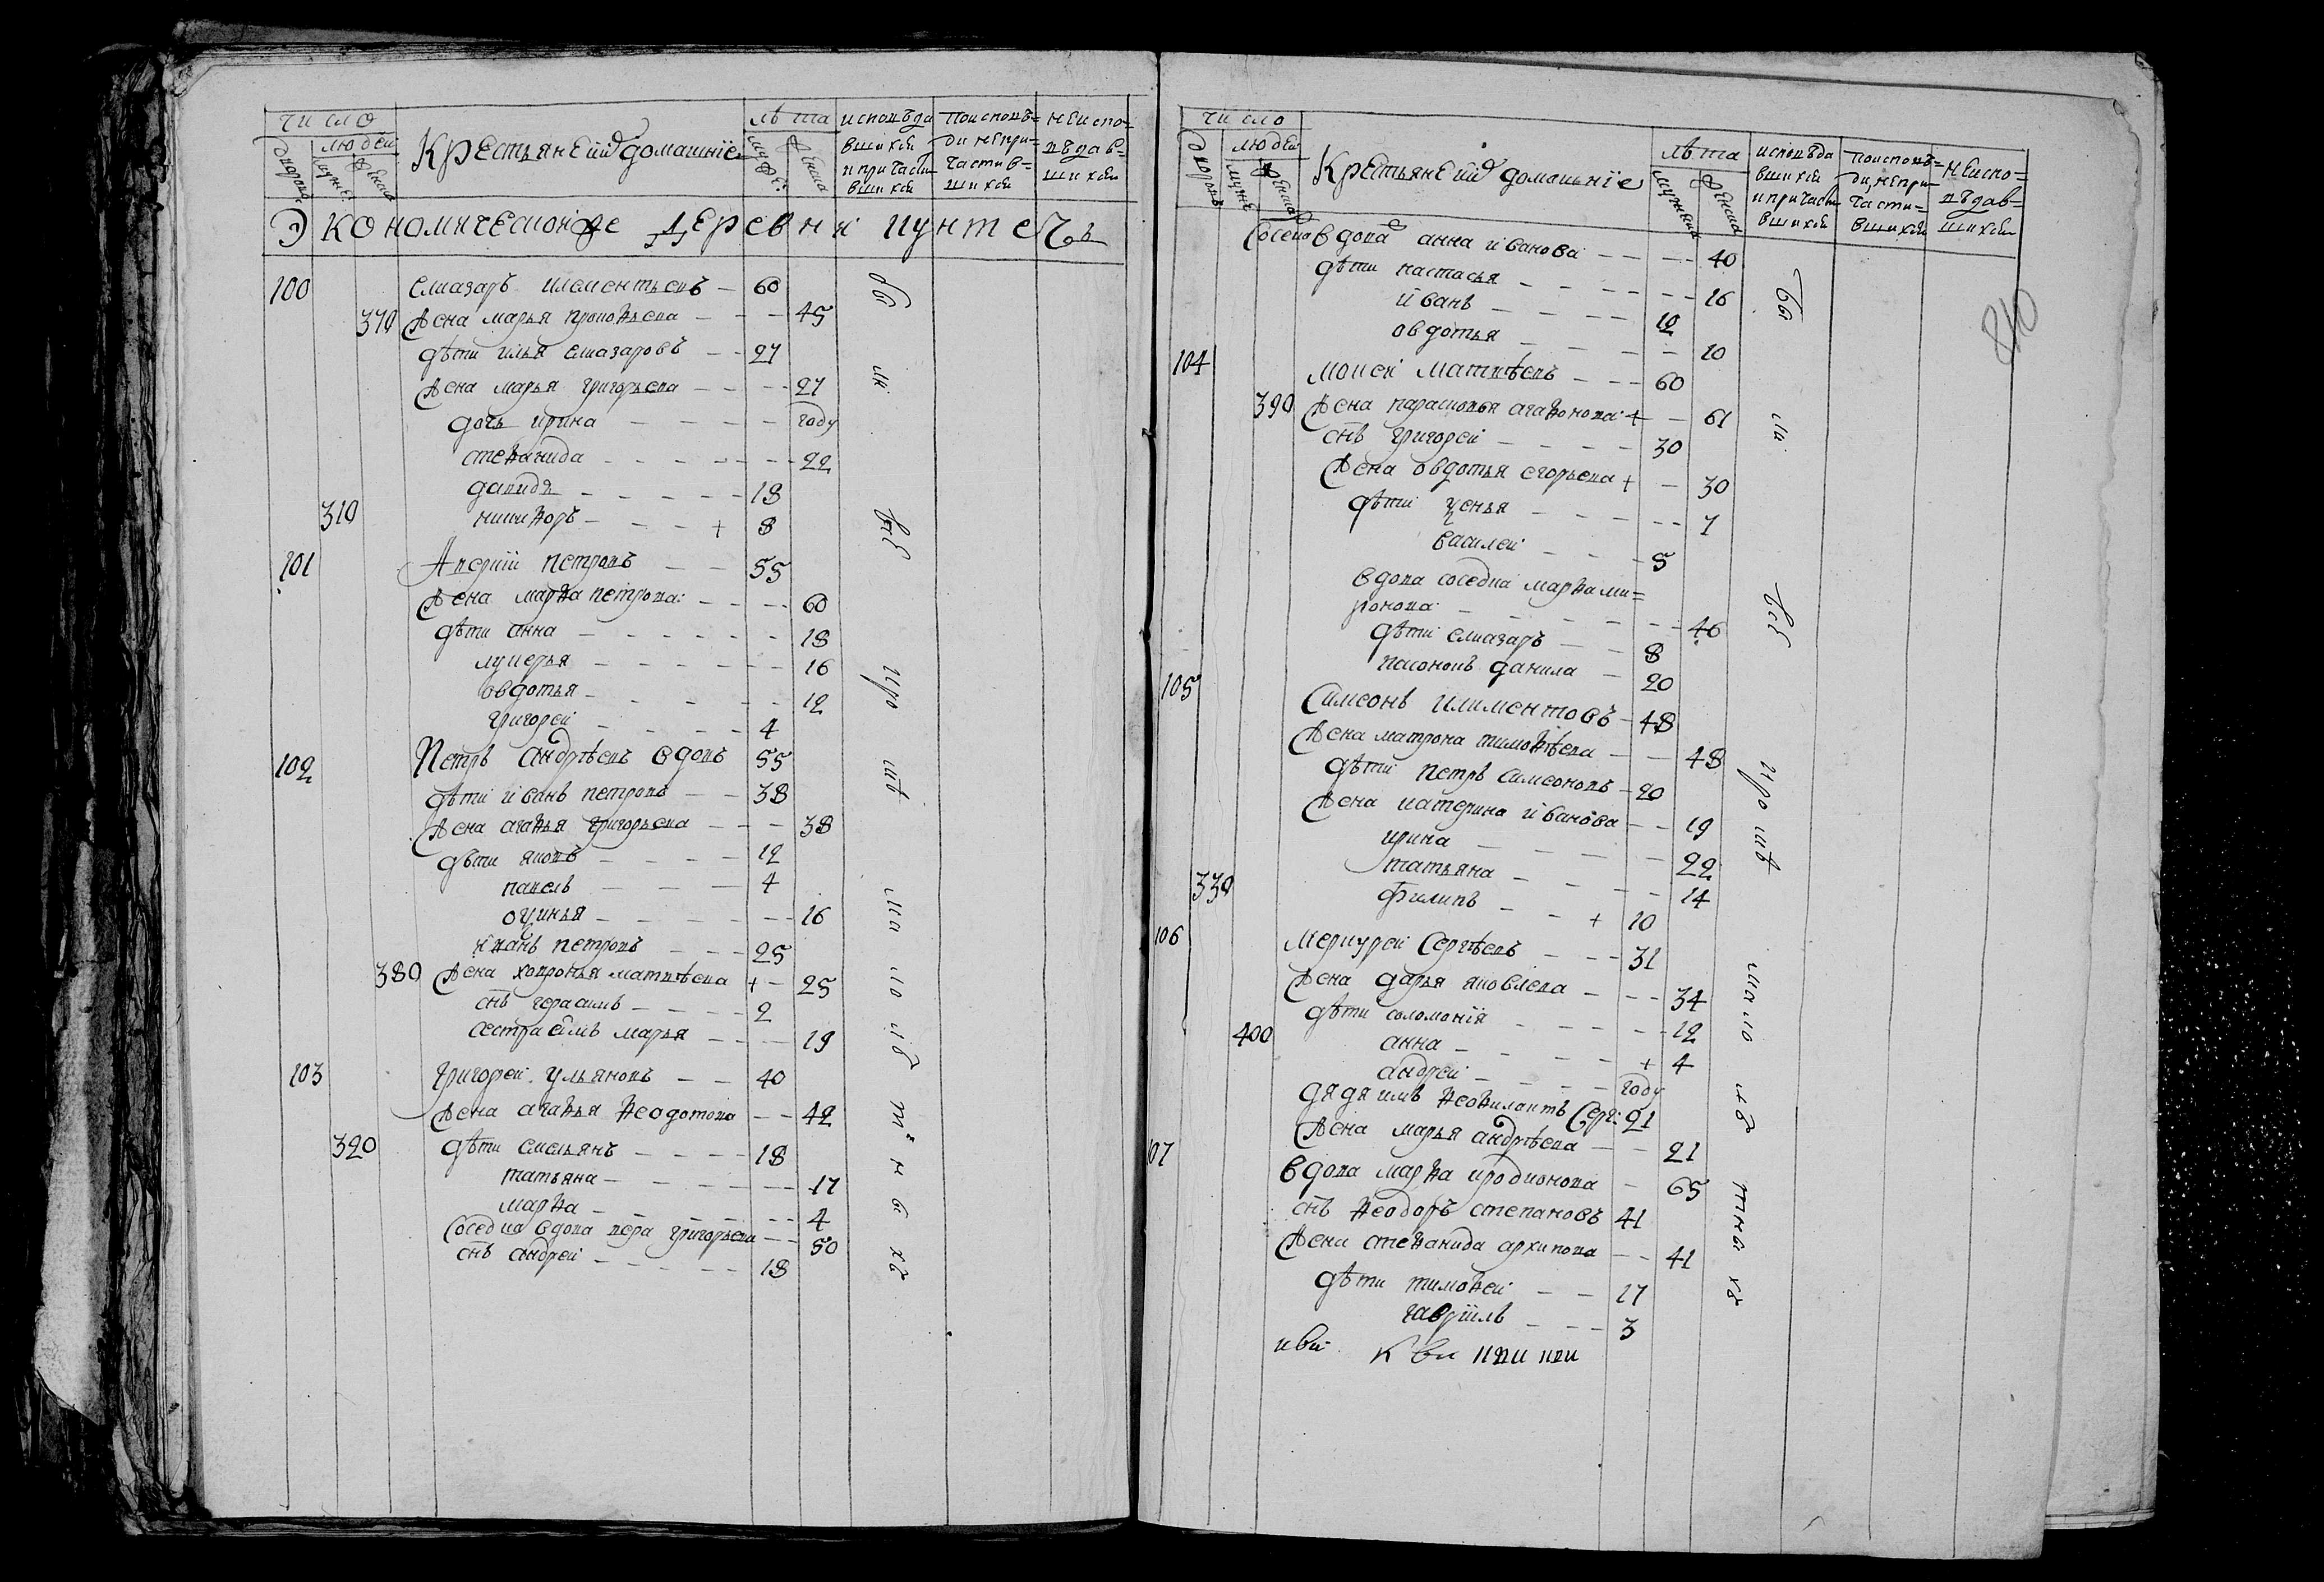 число
людей
дворовъ
мужеска
женска
Крестьяне и ихъ домашнїе
лѣта
мужеска
женска
исповѣда
вшихся
и причасти
вшихся
по исповѣ=
ди непри=
частив=
шихся
Неиспо=
вѣдав=
шихся
Экономическойже деревни
100 Елиазаръ Клементьевъ — 60
370 Жена марья прокофьева — 45
дѣти илья елиазаровъ — 27
Жена марья григорьева — 27
дочь ирина — году
стефанида — 22
давидъ — 18
310 никифоръ — + 8
101 петровъ — 55
Жена марфа петрова: — 60
дѣти анна — 18
лукерья — 16
овдотья — 12
григорей — 4
102 Петръ Андрѣевъ вдовъ 55
дѣти иванъ петровъ — 38
Жена агафья григорьева — 38
дѣти яковъ — 12
павелъ — 4
— 16
иванъ петровъ — 25
380 Жена матвѣева + — 25
снъ герасимъ — 2
сестра ймъ марья — 19
103 Григорей ульяновъ — 40
Жена агафья феодотова — 42
320 дѣти емельянъ — 18
татьяна — 17
марфа — 4
Соседка вдова вера григорьева — 50
снъ андрей — 18
число
людей
дворовъ
мужеска
женска
Крестьяне и ихъ домашнїе
лѣта
мужеска
женска
исповѣда
вшихся
и причасти
вшихся
по исповѣ=
ди, непри=
части=
вшихся
Неиспо=
вѣдав=
шихся
840
вдова анна иванова — 40
дѣти настасья — 16
иванъ — 12
овдотья — 10
104 моисей матвѣевъ — 60
390 Жена парасковья агафонова + — 61
снъ григорей — 30
Жена овдотья егорьева + — 30
дѣти — 7
василей — 5
вдова соседка марфа ми=
ронова — 46
дѣти елиазаръ — 8
данила — 20
105 Симеонъ Климентовъ — 48
Жена матрона тимофѣева — 48
дѣти петръ симеоновъ — 20
Жена катерина иванова — 19
ирина — 22
татьяна — 14
330 Филипъ — + 10
106 меркурей Сергѣевъ — 31
Жена дарья яковлева — 34
дѣти соломонїя — 12
400 анна — + 4
андрей — году
дядя имъ феофилактъ Серг: 21
Жена марья андрѣева — 21
107 вдова марфа иродионова — 65
снъ феодоръ степановъ 41
Жена стефанида архипова — 41
дѣти тимофей — 17
гаврїилъ — 3